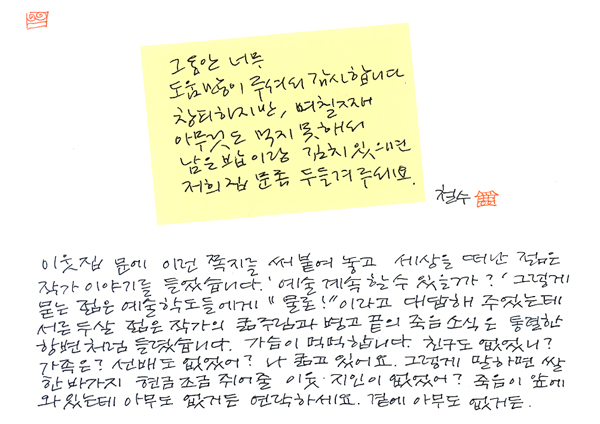 그동안 너무
도움 많이 주셔서 감사합니다
창피하지만, 며칠째
아무것도 먹지 못해서
남은 밥이랑 김치 있으면
저희집 문좀 두들겨 주세요.
철수
이웃집 문에 이런 쪽지를 써 붙여 놓고 세상을 떠난 젊은
작가 이야기를 들었습니다. '예술 계속 할 수 있을까?' 그렇게
묻는 젊은 예술학도들에게 "물론!"이라고 대답해 주었는데
서른 두살 젊은 작가의 굶주림과 병고 끝의 죽음 소식은 통렬한
항변처럼 들렸습니다. 가슴이 먹먹합니다. 친구도 없었니?
가족은? 선배도 없었어? 나 굶고 있어요. 그렇게 말하면 쌀
한 바가지 현금 조금 쥐어줄 이웃·지인이 없었어? 죽음이 앞에
와 있는데 아무도 없거든 연락하세요. 곁에 아무도 없거든.